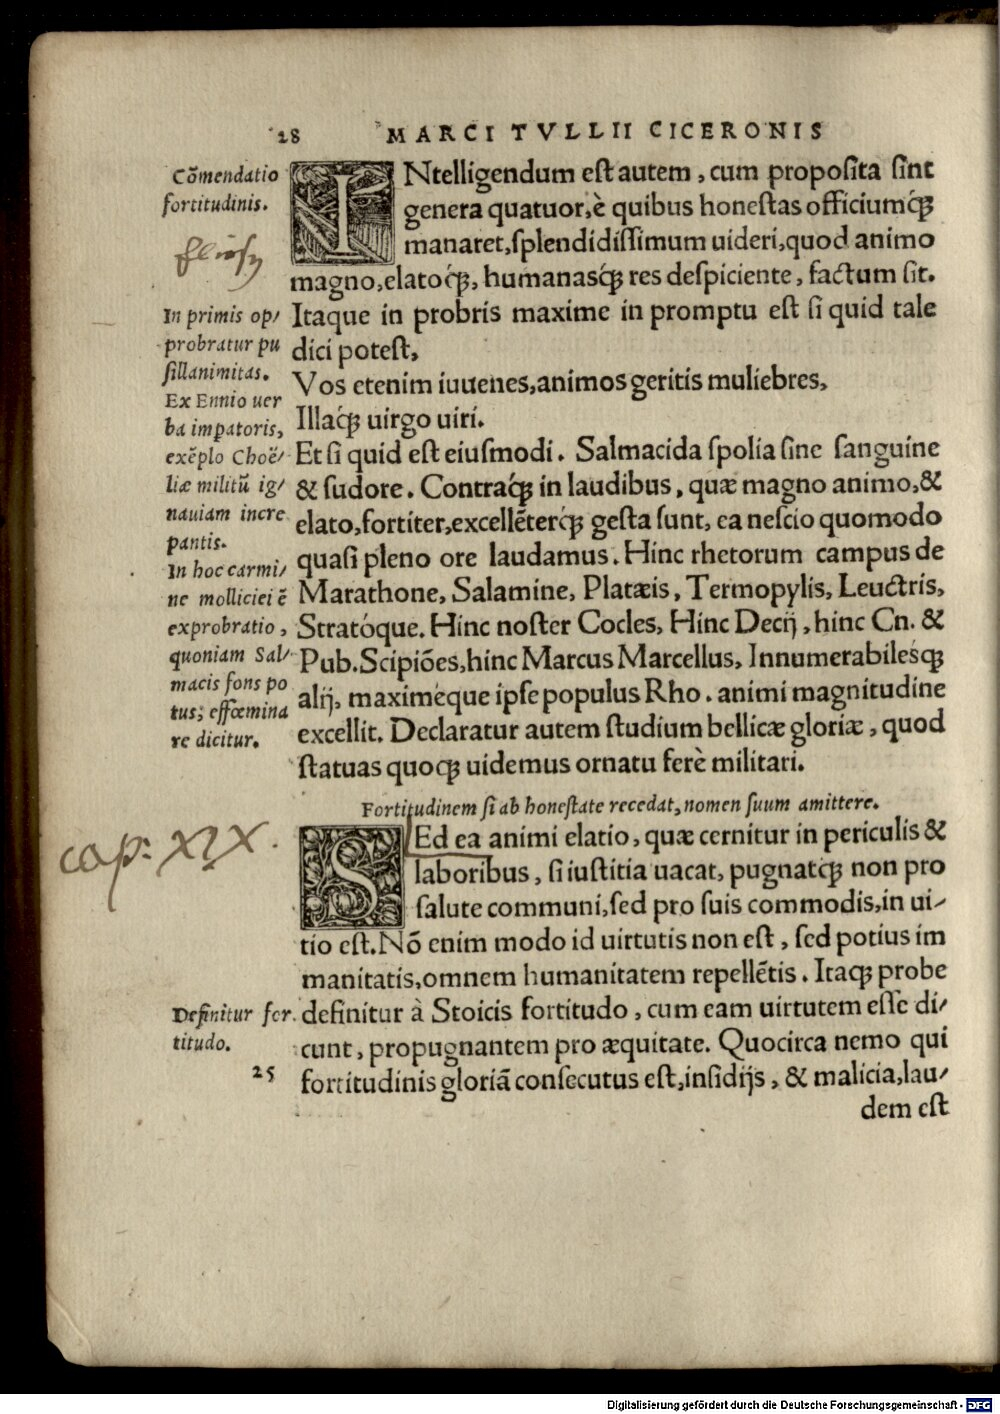 28 MARCI TVLLII CICERONIS
Cõmendatio
fortitudinis.
INtelligendum est autem, cum proposita sint
genera quatuor, è quibus honestas officiumq́ꝫ
manaret, splendidissimum uideri, quod animo
magno, elatoq́ꝫ, humanasq́ꝫ res despiciente, factum sit.
Itaque in probris maxime in promptu est si quid tale
dici potest,
Vos etenim iuuenes, animos geritis muliebres,
Illaq́ꝫ uirgo uiri.
Et si quid est eiusmodi. Salmacida spolia sine sanguine
& sudore. Contraq́ꝫ in laudibus, quæ magno animo, &
elato, fortiter, excellẽterq́ꝫ gesta sunt, ea nescio quomodo
quasi pleno ore laudamus. Hinc rhetorum campus de
Marathone, Salamine, Platæis, Termopylis, Leuctris,
Stratóque. Hinc noster Cocles, Hinc Decij, hinc Cn. &
Pub. Scipiões, hinc Marcus Marcellus, Innumerabilesq́ꝫ
alij, maximéque ipse populus Rho. animi magnitudine
excellit. Declaratur autem studium bellicæ gloriæ, quod
statuas quoqꝫ uidemus ornatu ferè militari.
In primis op-
probratur pu
sillanimitas.
Ex Ennio uer
ba impatoris,
exẽplo Choë-
liæ militũ ig-
nauiam incre
pantis.
In hoc carmi-
ne molliciei ẽ
exprobratio,
quoniam Sal-
macis fons po
tus, effœmina
re dicitur.
Fortitudinem si ab honestate recedat, nomen suum amittere.
cap: XIX.
SEd ea animi elatio, quæ cernitur in periculis &
laboribus, si iustitia uacat, pugnatqꝫ non pro
salute communi, sed pro suis commodis, in ui-
tio est. Nõ enim modo id uirtutis non est, sed potius im
manitatis, omnem humanitatem repellẽtis. Itaqꝫ probe
definitur à Stoicis fortitudo, cum eam uirtutem esse di-
cunt, propugnantem pro æquitate. Quocirca nemo qui
fortitudinis gloriã consecutus est, insidijs, & malicia, lau-
dem est
Definitur for-
titudo.
25
Digitalisierung gefördert durch die Deutsche Forschungsgemeinschaft - DFG